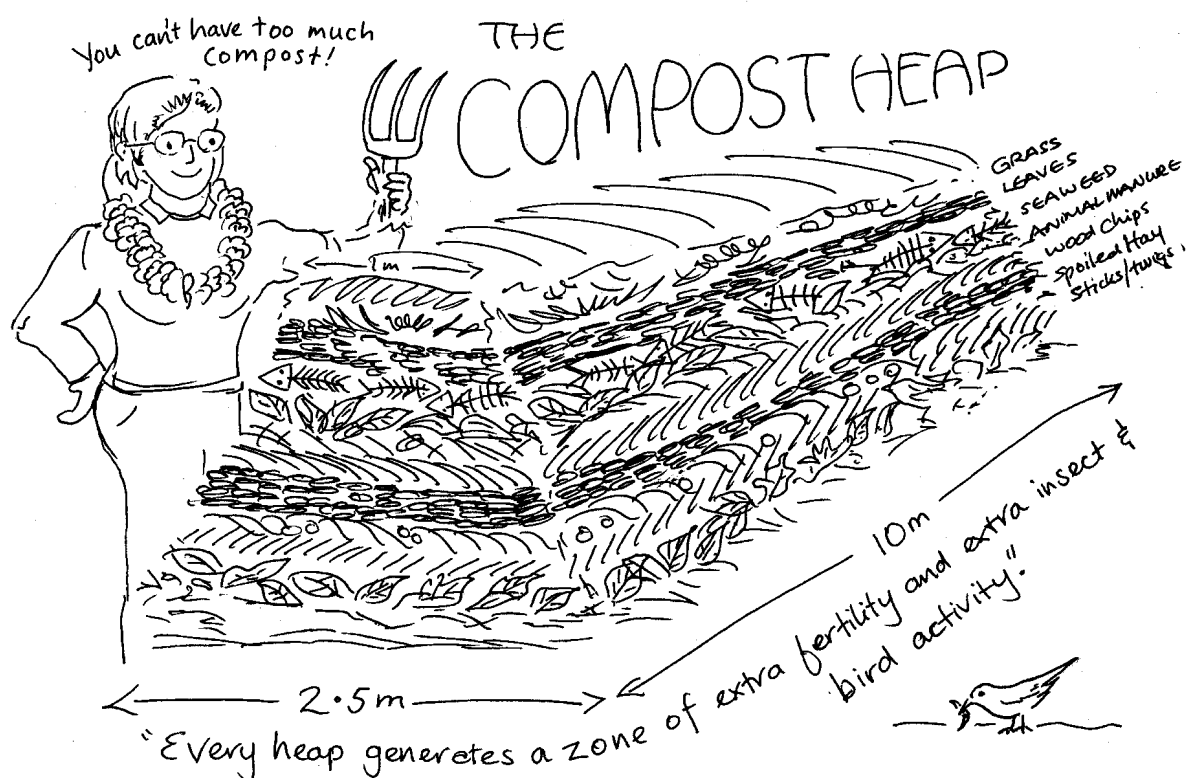 You can't have too much
compost!
THE
COMPOST HEAP
GRASS
LEAVES
SEAWEED
ANIMAL MANURE
Wood Chips
Spoiled Hay
Sticks/twigs.
1m
10m
2.5m
"Every heap generates a zone of extra fertility and extra insect &
bird activity."